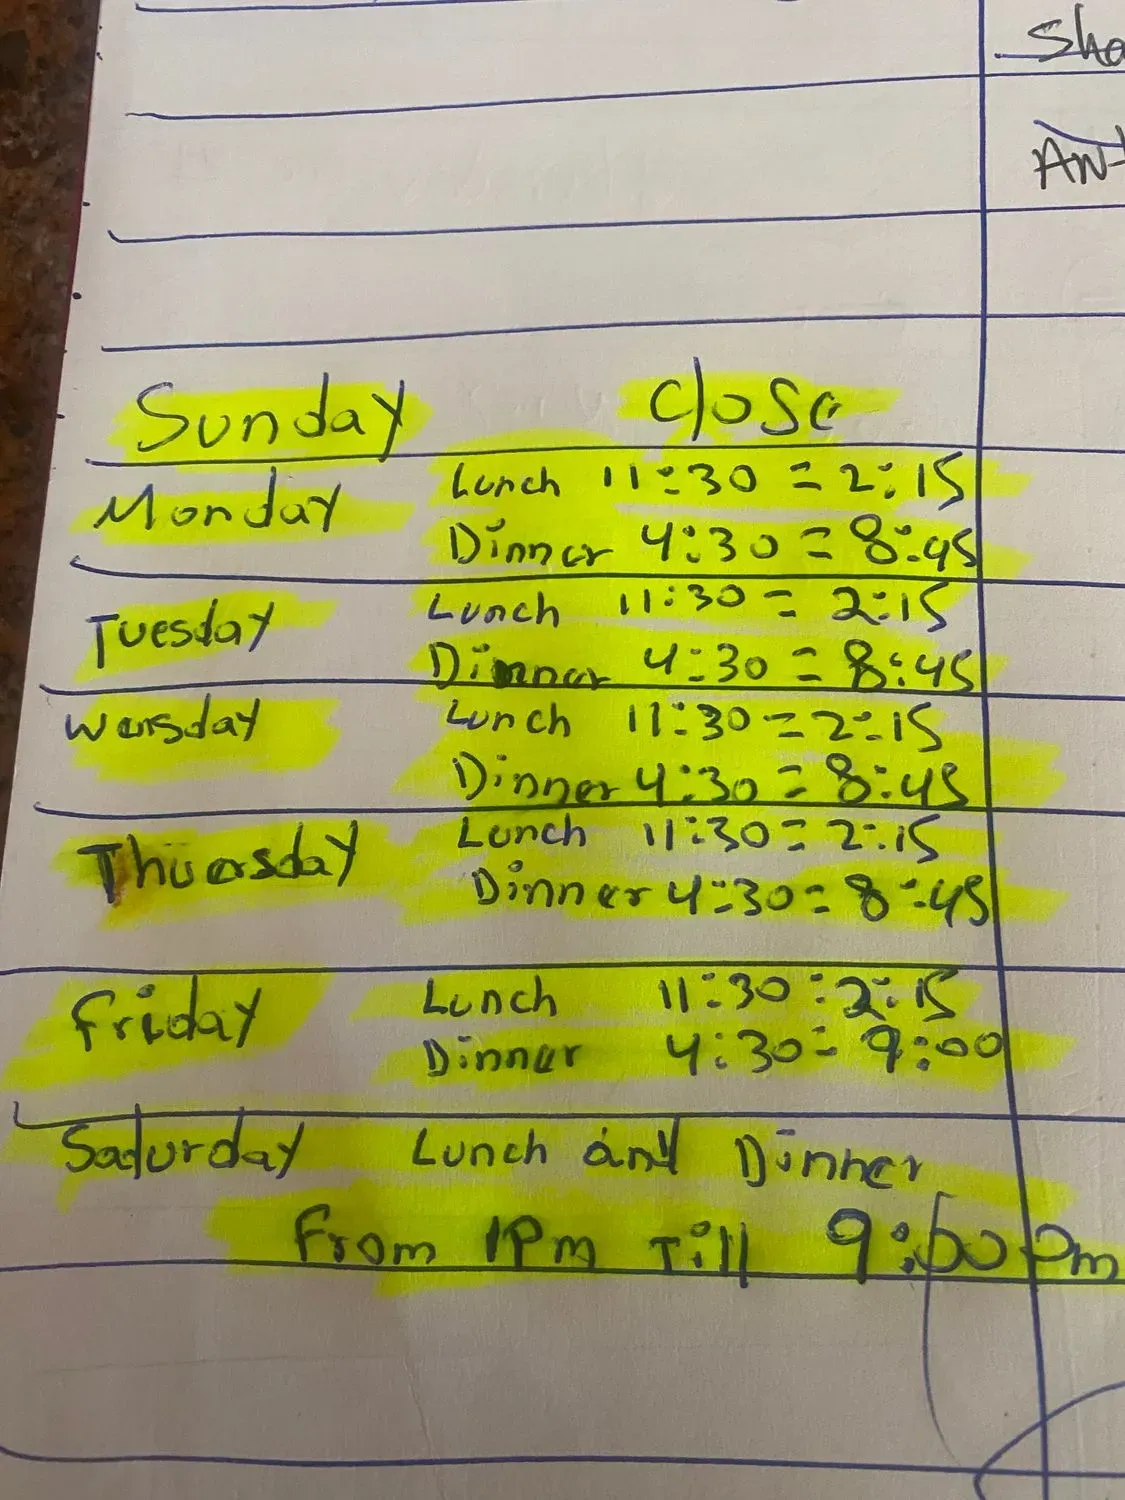 Sho
An
Sunday Close
Monday Lunch 11:30 = 2:15
Dinner 4:30 = 8:45
Tuesday Lunch 11:30 = 2:15
Dinner 4:30 = 8:45
Wensday Lunch 11:30 = 2:15
Dinner 4:30 = 8:45
Thuersday Lunch 11:30 = 2:15
Dinner 4:30 = 8:45
Friday Lunch 11:30 = 2:15
Dinner 4:30 = 9:00
Saturday Lunch and Dinner
From 1Pm Till 9:00 Pm